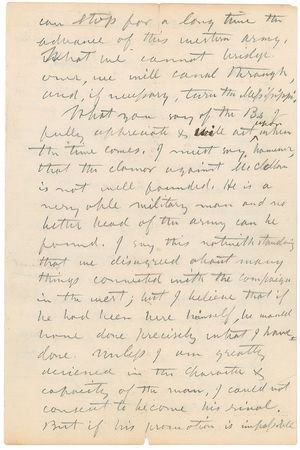 can stop for a long time the
advance of this western army.
What we cannot bridge
over, we will canal through,
and, if necessary, turn the Mississippi.
What you say of the I
fully appreciate & will act upon when
the time comes. I must say, however,
that the clamor against McClellan
is not well founded. He is a
very able military man and no
better head of the army can be
found. I say this notwithstanding
that we disagreed about many
things connected with the campaign
in the west; but I believe that if
he had been here himself, he would
have done precisely what I have
done. Unless I am greatly
deceived in the character &
capacity of the man, I could not
consent to become his rival.
But if his promotion is impossible